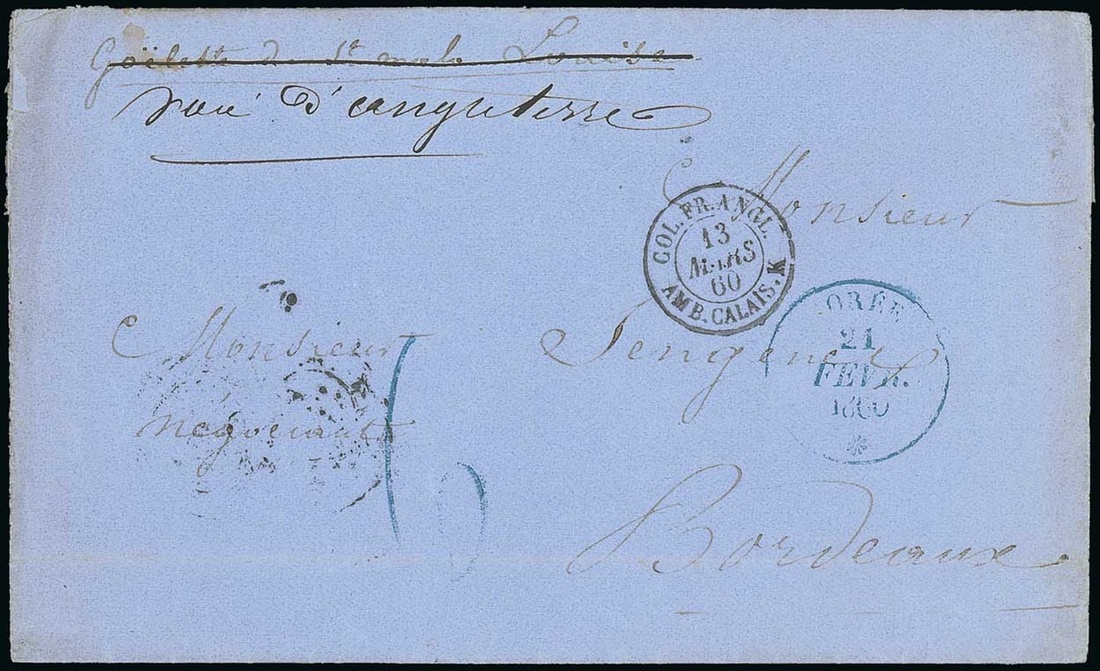 Goëlette de St malo Louise
voie d'angleterre
Monsieur
COL. FR. ANGL.
13
MARS
60
AMB. CALAIS. K
GORÉE
21
FEVR.
1860
Monsieur
négociant
6
Bordeaux